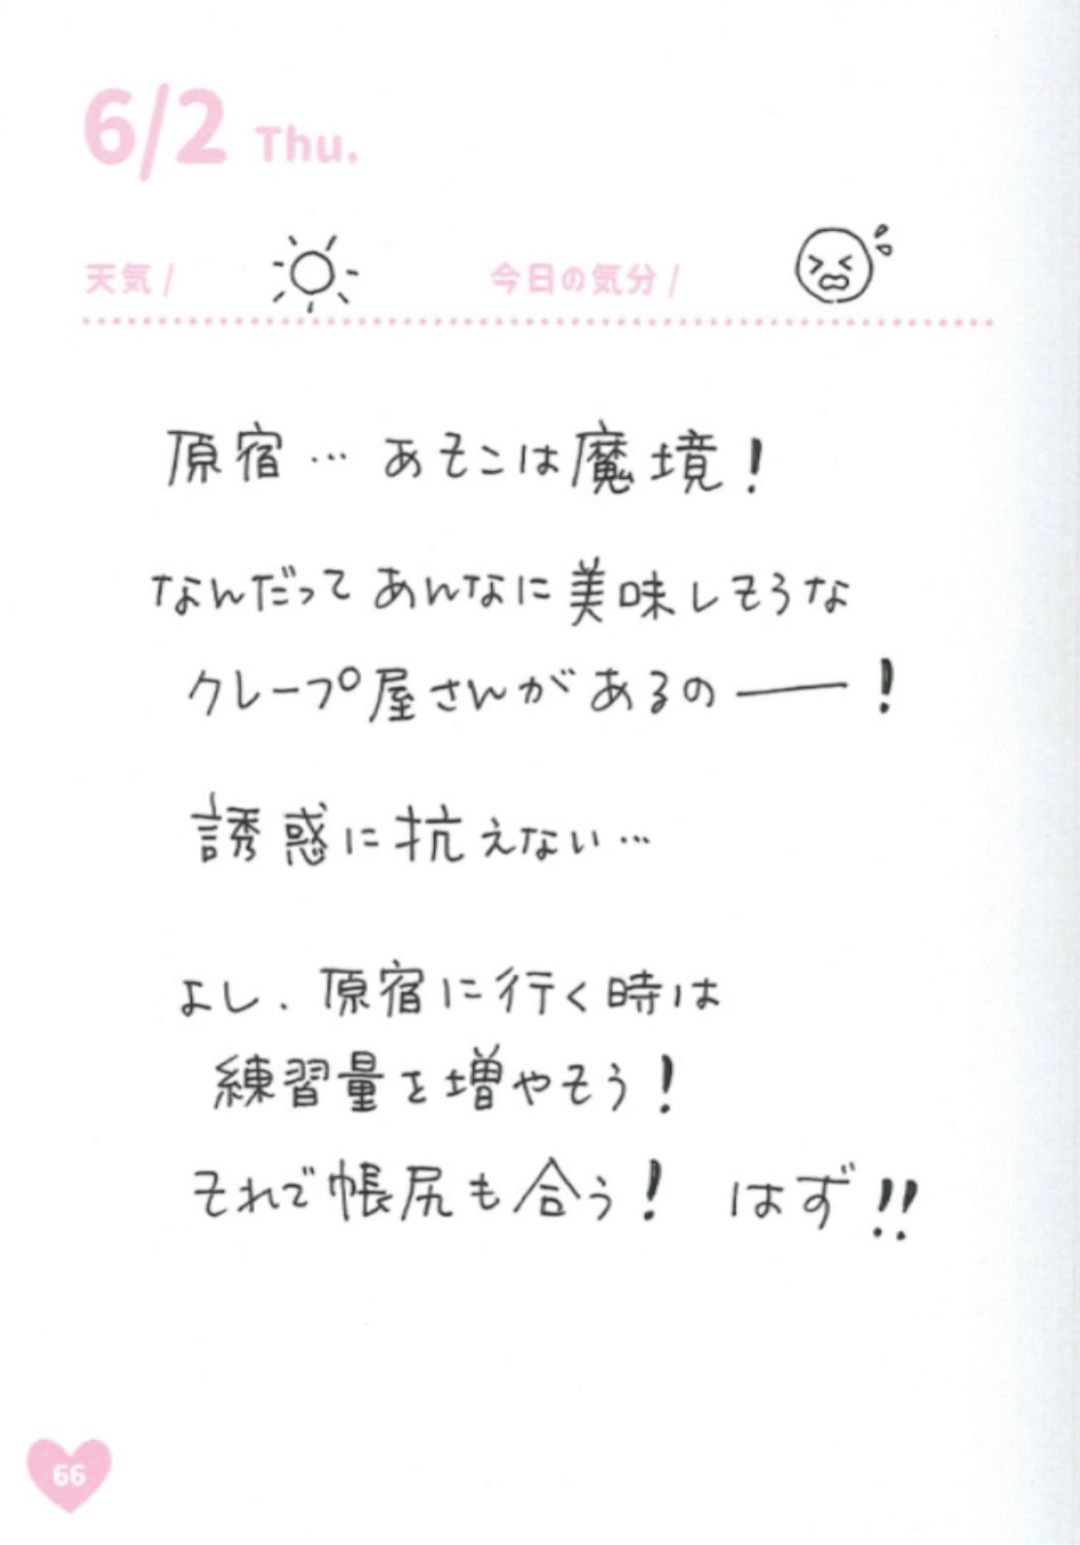 6/2 Thu.
天気/ 今日の気分/
原宿… あそこは魔境！
なんだってあんなに美味しそうな
クレープ屋さんがあるの――！
誘惑に抗えない…
よし、原宿に行く時は
練習量を増やそう！
それで帳尻も合う！ はず!!
66